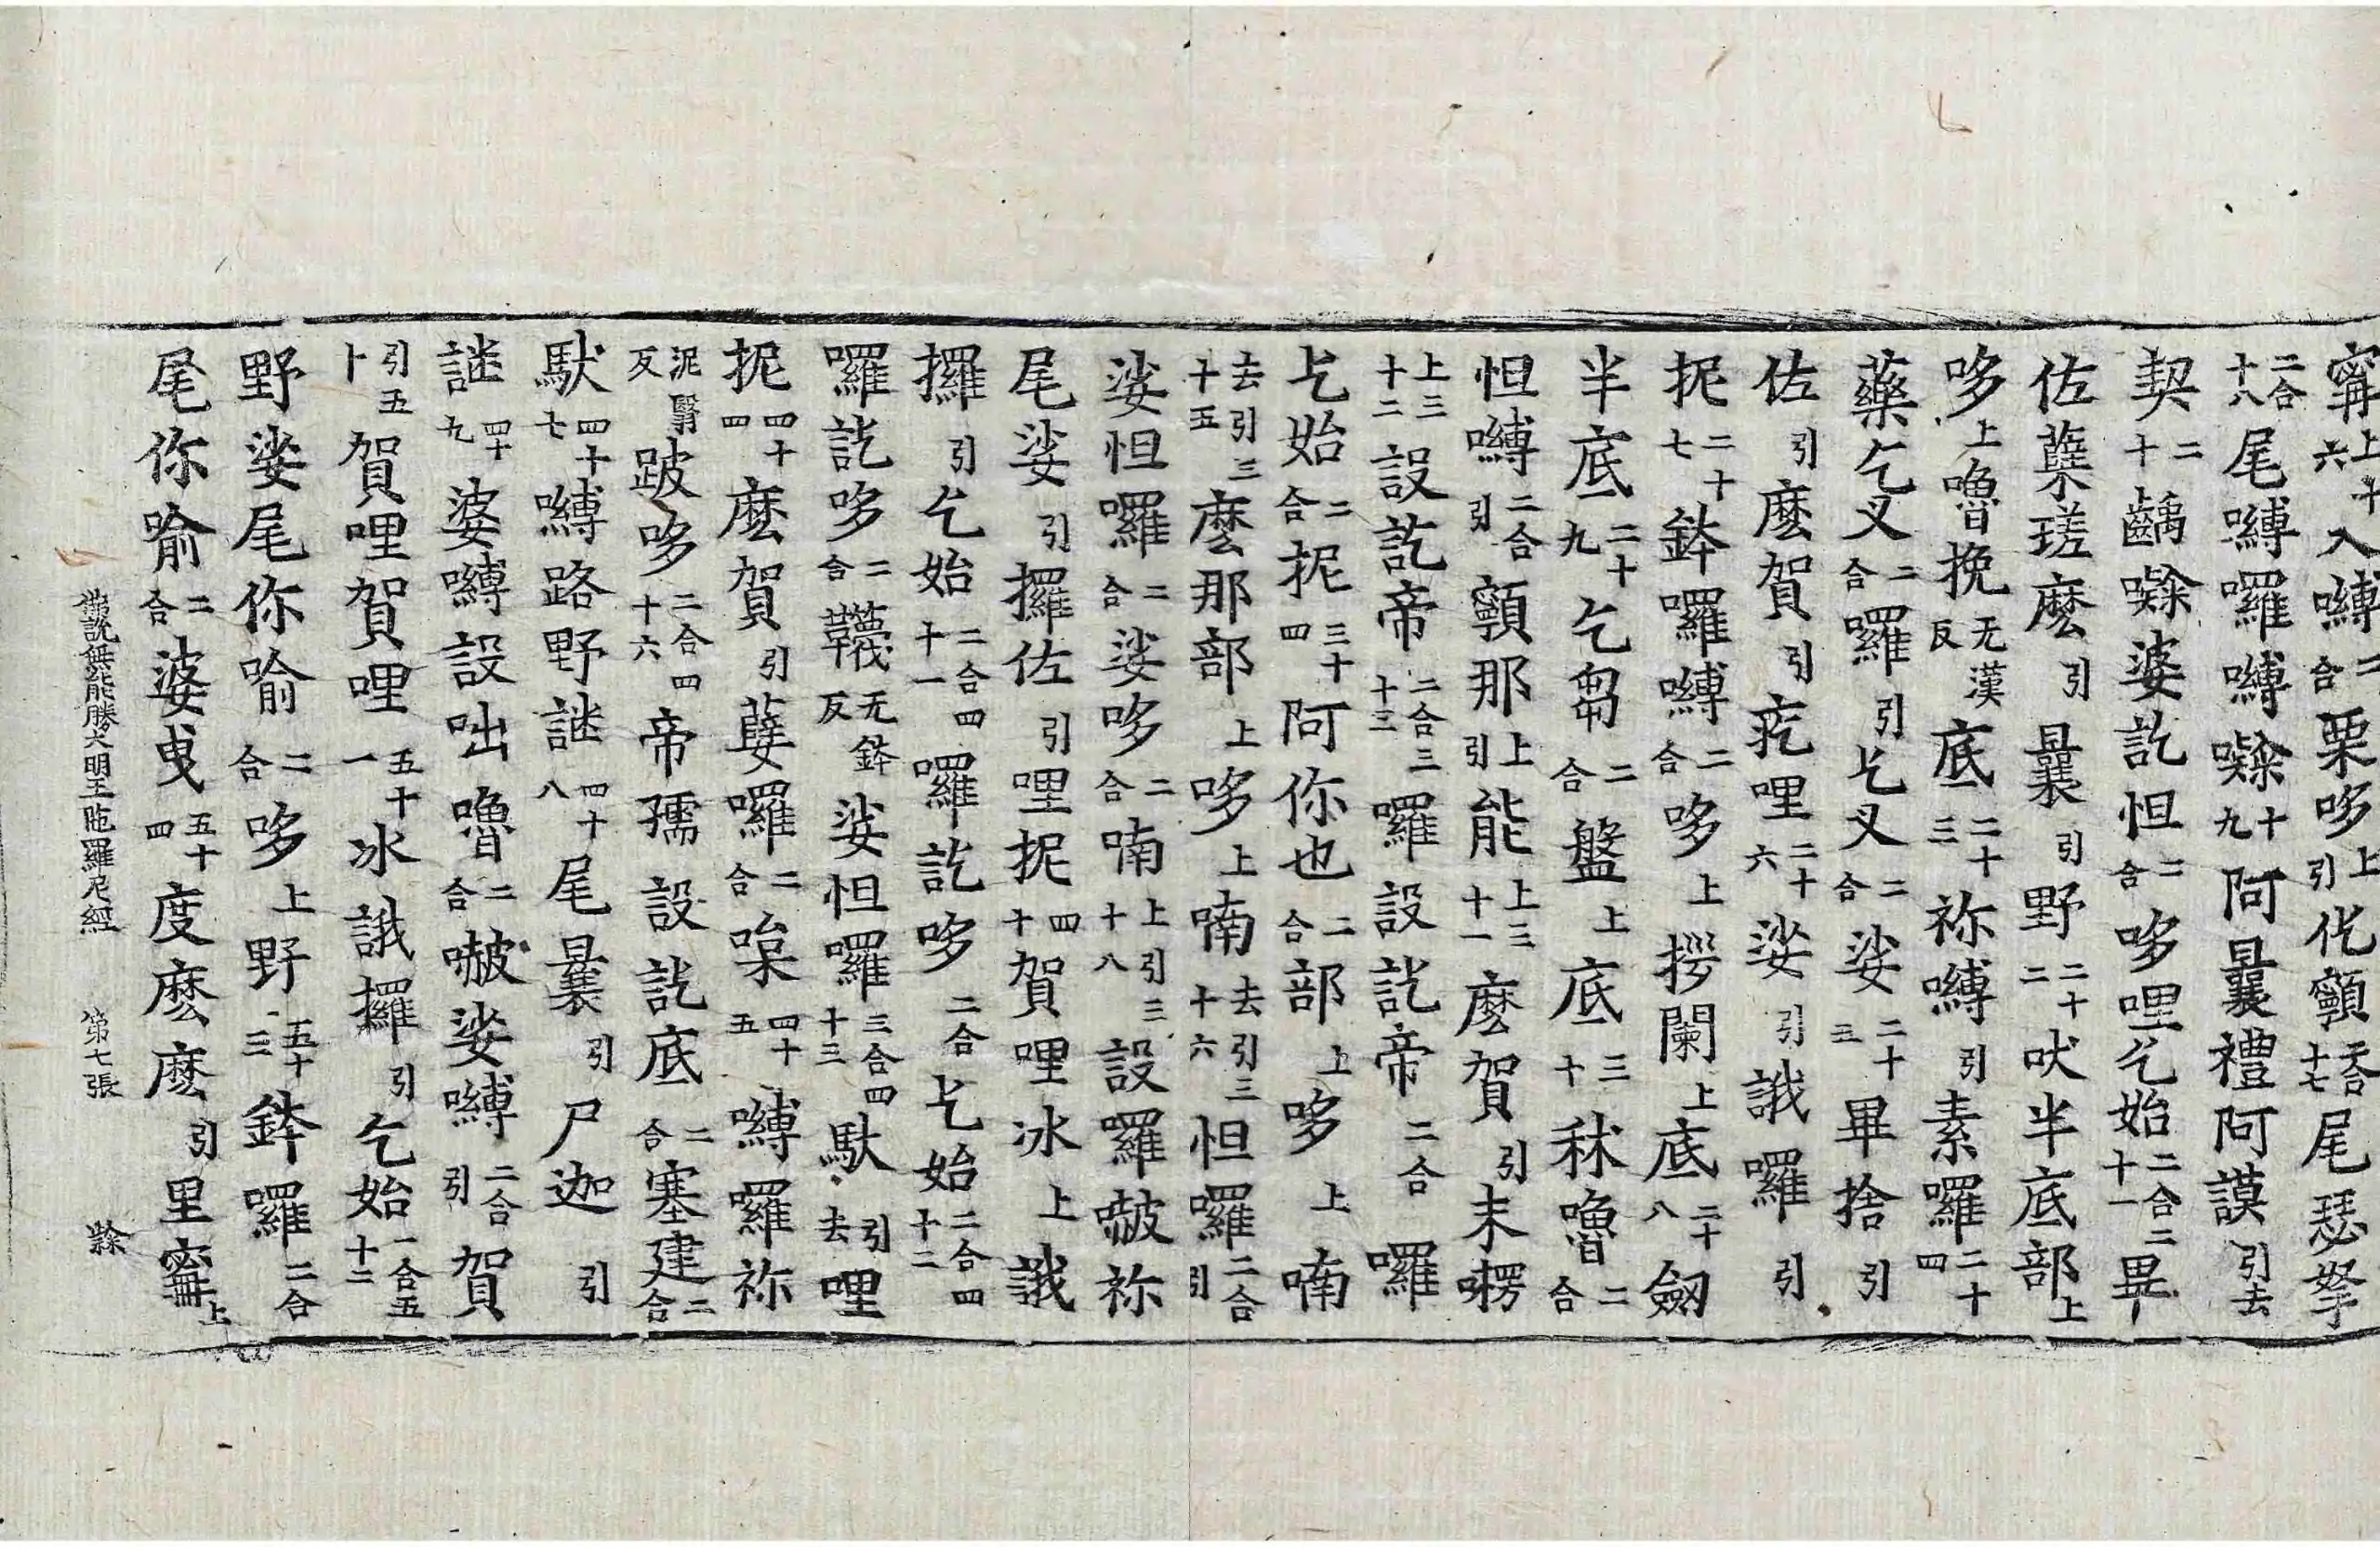 寗上十六入嚩二合栗哆上引仡顐二合十七尾瑟拏
二合十八尾嚩囉嚩㘑十九阿曩禮阿謨引去
契二十齲㘑婆訖怛二合哆哩乞始二合二十一畢
佐蘖瑳麽引曩引野二十二吠半底部上
哆上嚕挽无漢反底二十三祢嚩引素囉二十四
藥乞叉二合羅引乞叉二合娑二十五畢捨引
佐引麽賀引疙哩二十六娑引誐囉引
抳二十七鉢囉嚩二合哆上拶闌上底二十八劔
半底二十九乞芻二合盤上底三十秫嚕二合
怛嚩二合引顐那上引能上三十一麽賀引末㗚
上三十二設訖帝二合三十三囉設訖帝二合囉
乞始二合抳三十四阿你也二合部上哆上喃
去引三十五麽那部上哆上喃去引三十六怛囉二合引
娑怛囉二合娑哆二合喃上引三十八設囉皷祢
尾娑引攞佐引哩抳四十賀哩冰上誐
攞引乞始二合四十一囉訖哆二合乞始二合四十二
囉訖哆二合韈无鉢反娑怛囉二合四十三馱引去哩
抳四十四麽賀引孽囉二合㗖四十五嚩囉祢
泥賢反跛哆二合四十六帝孺設訖底二合塞建二合
馱四十七嚩路野謎四十八尾曩引尸迦引
謎四十九婆嚩設咄嚕二合嚬娑嚩二合引賀
引五十賀哩賀哩五十一冰誐攞引乞始二合五十二
野娑尾你喻二合哆上野五十三鉢囉二合
尾你喻二合婆曳五十四度麽麽引里寗上
佛說無能勝大明王陁羅尼經　第七張　㱔